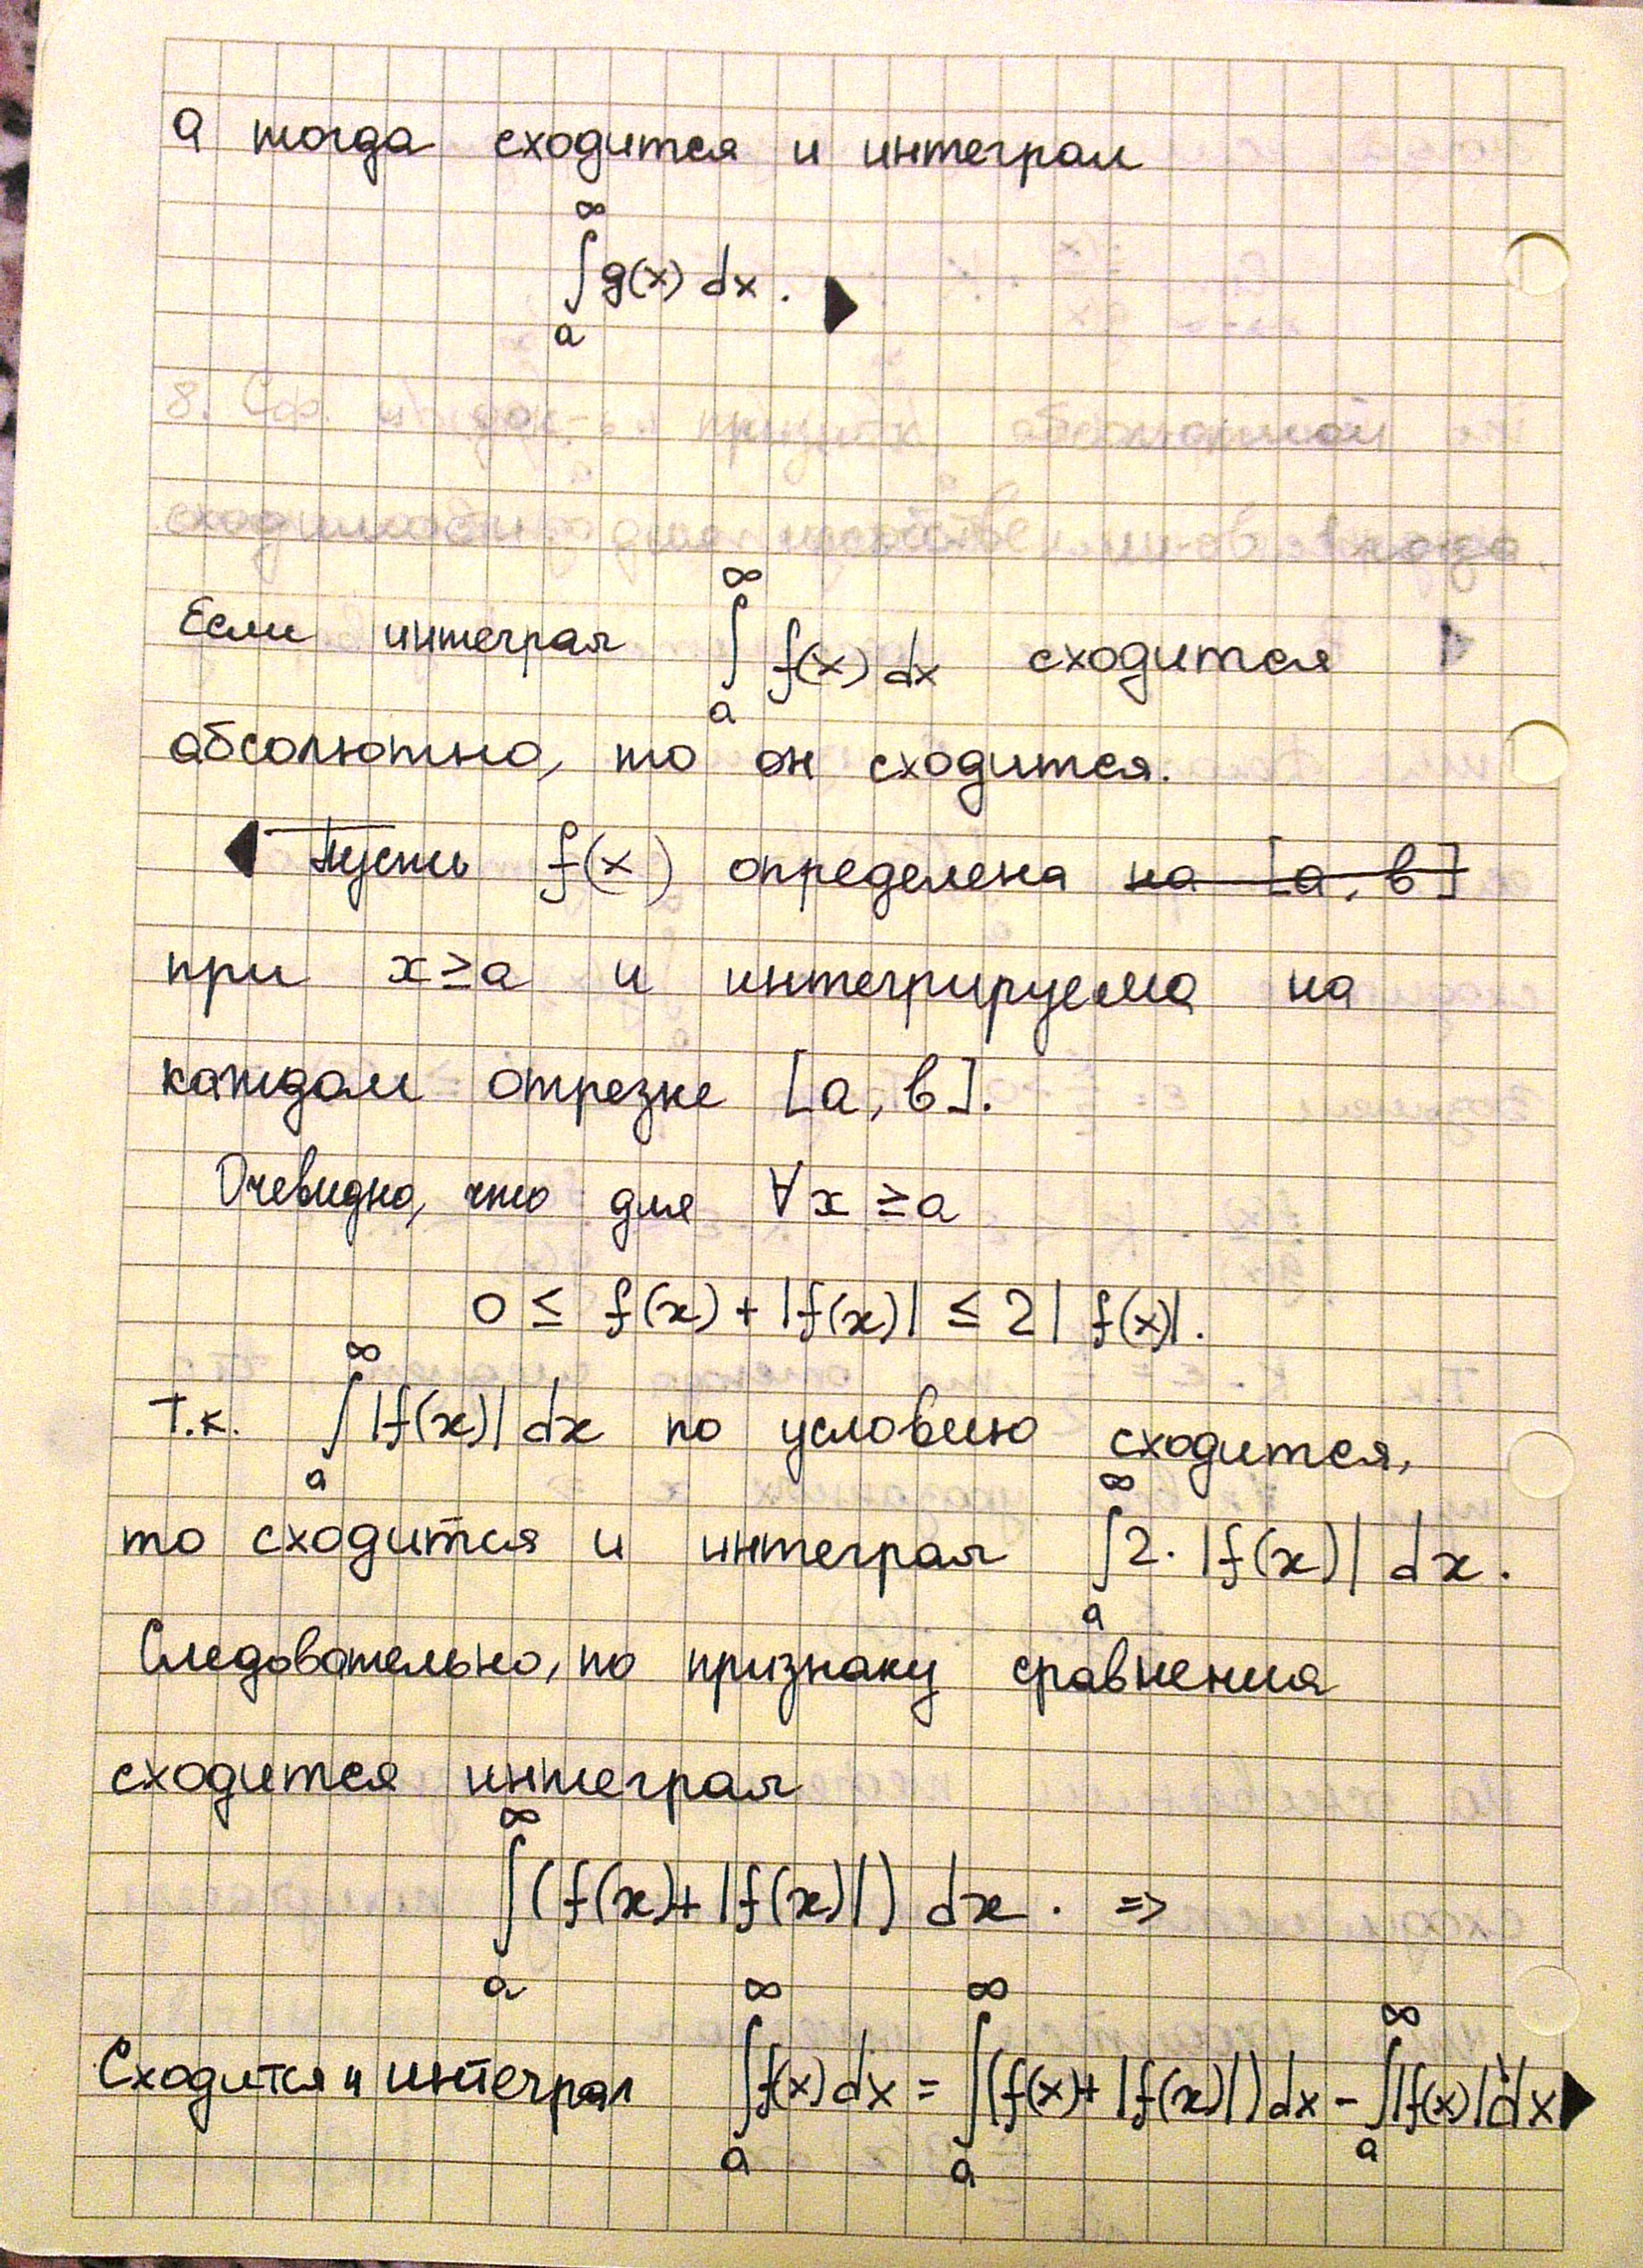 а тогда сходится и интеграл
∞
∫ g(x) dx.
a
8. Сф. и док-ть признак абсолютной
сходимости для несобств. инт-ов 1 рода.
Если интеграл ∫ₐ^∞ f(x) dx сходится
абсолютно, то он сходится.
Пусть f(x) определена на [a, b]
при x ≥ a и интегрируема на
каждом отрезке [a, b].
Очевидно, что для ∀x ≥ a
0 ≤ f(x) + |f(x)| ≤ 2|f(x)|.
Т.к. ∫ₐ^∞ |f(x)| dx по условию сходится,
то сходится и интеграл ∫ₐ^∞ 2·|f(x)| dx.
Следовательно, по признаку сравнения
сходится интеграл
∫ₐ^∞ (f(x) + |f(x)|) dx. =>
Сходится и интеграл ∫ₐ^∞ f(x) dx = ∫ₐ^∞ (f(x) + |f(x)|) dx - ∫ₐ^∞ |f(x)| dx